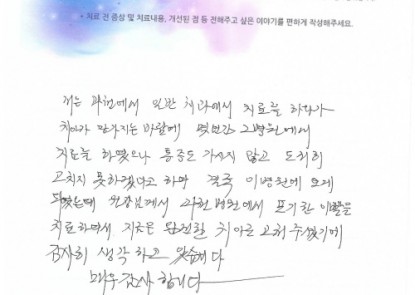 * 치료 전 증상 및 치료내용, 개선된 점 등 전해주고 싶은 이야기를 편하게 작성해주세요.
저는 과천에서 일반 치과에서 치료를 하다가
치아가 망가지는 바람에 몇년간 그병원에서
치료를 하였으나 통증도 가시지 않고 도저히
고치지 못하겠다고 하여 결국 이병원에 오게
되었는데 원장님께서 과천 병원에서 포기한 이빨을
치료하여서 지금은 완전한 치아로 고쳐 주셨기에
감사히 생각 하고 있습니다
매우 감사 합니다